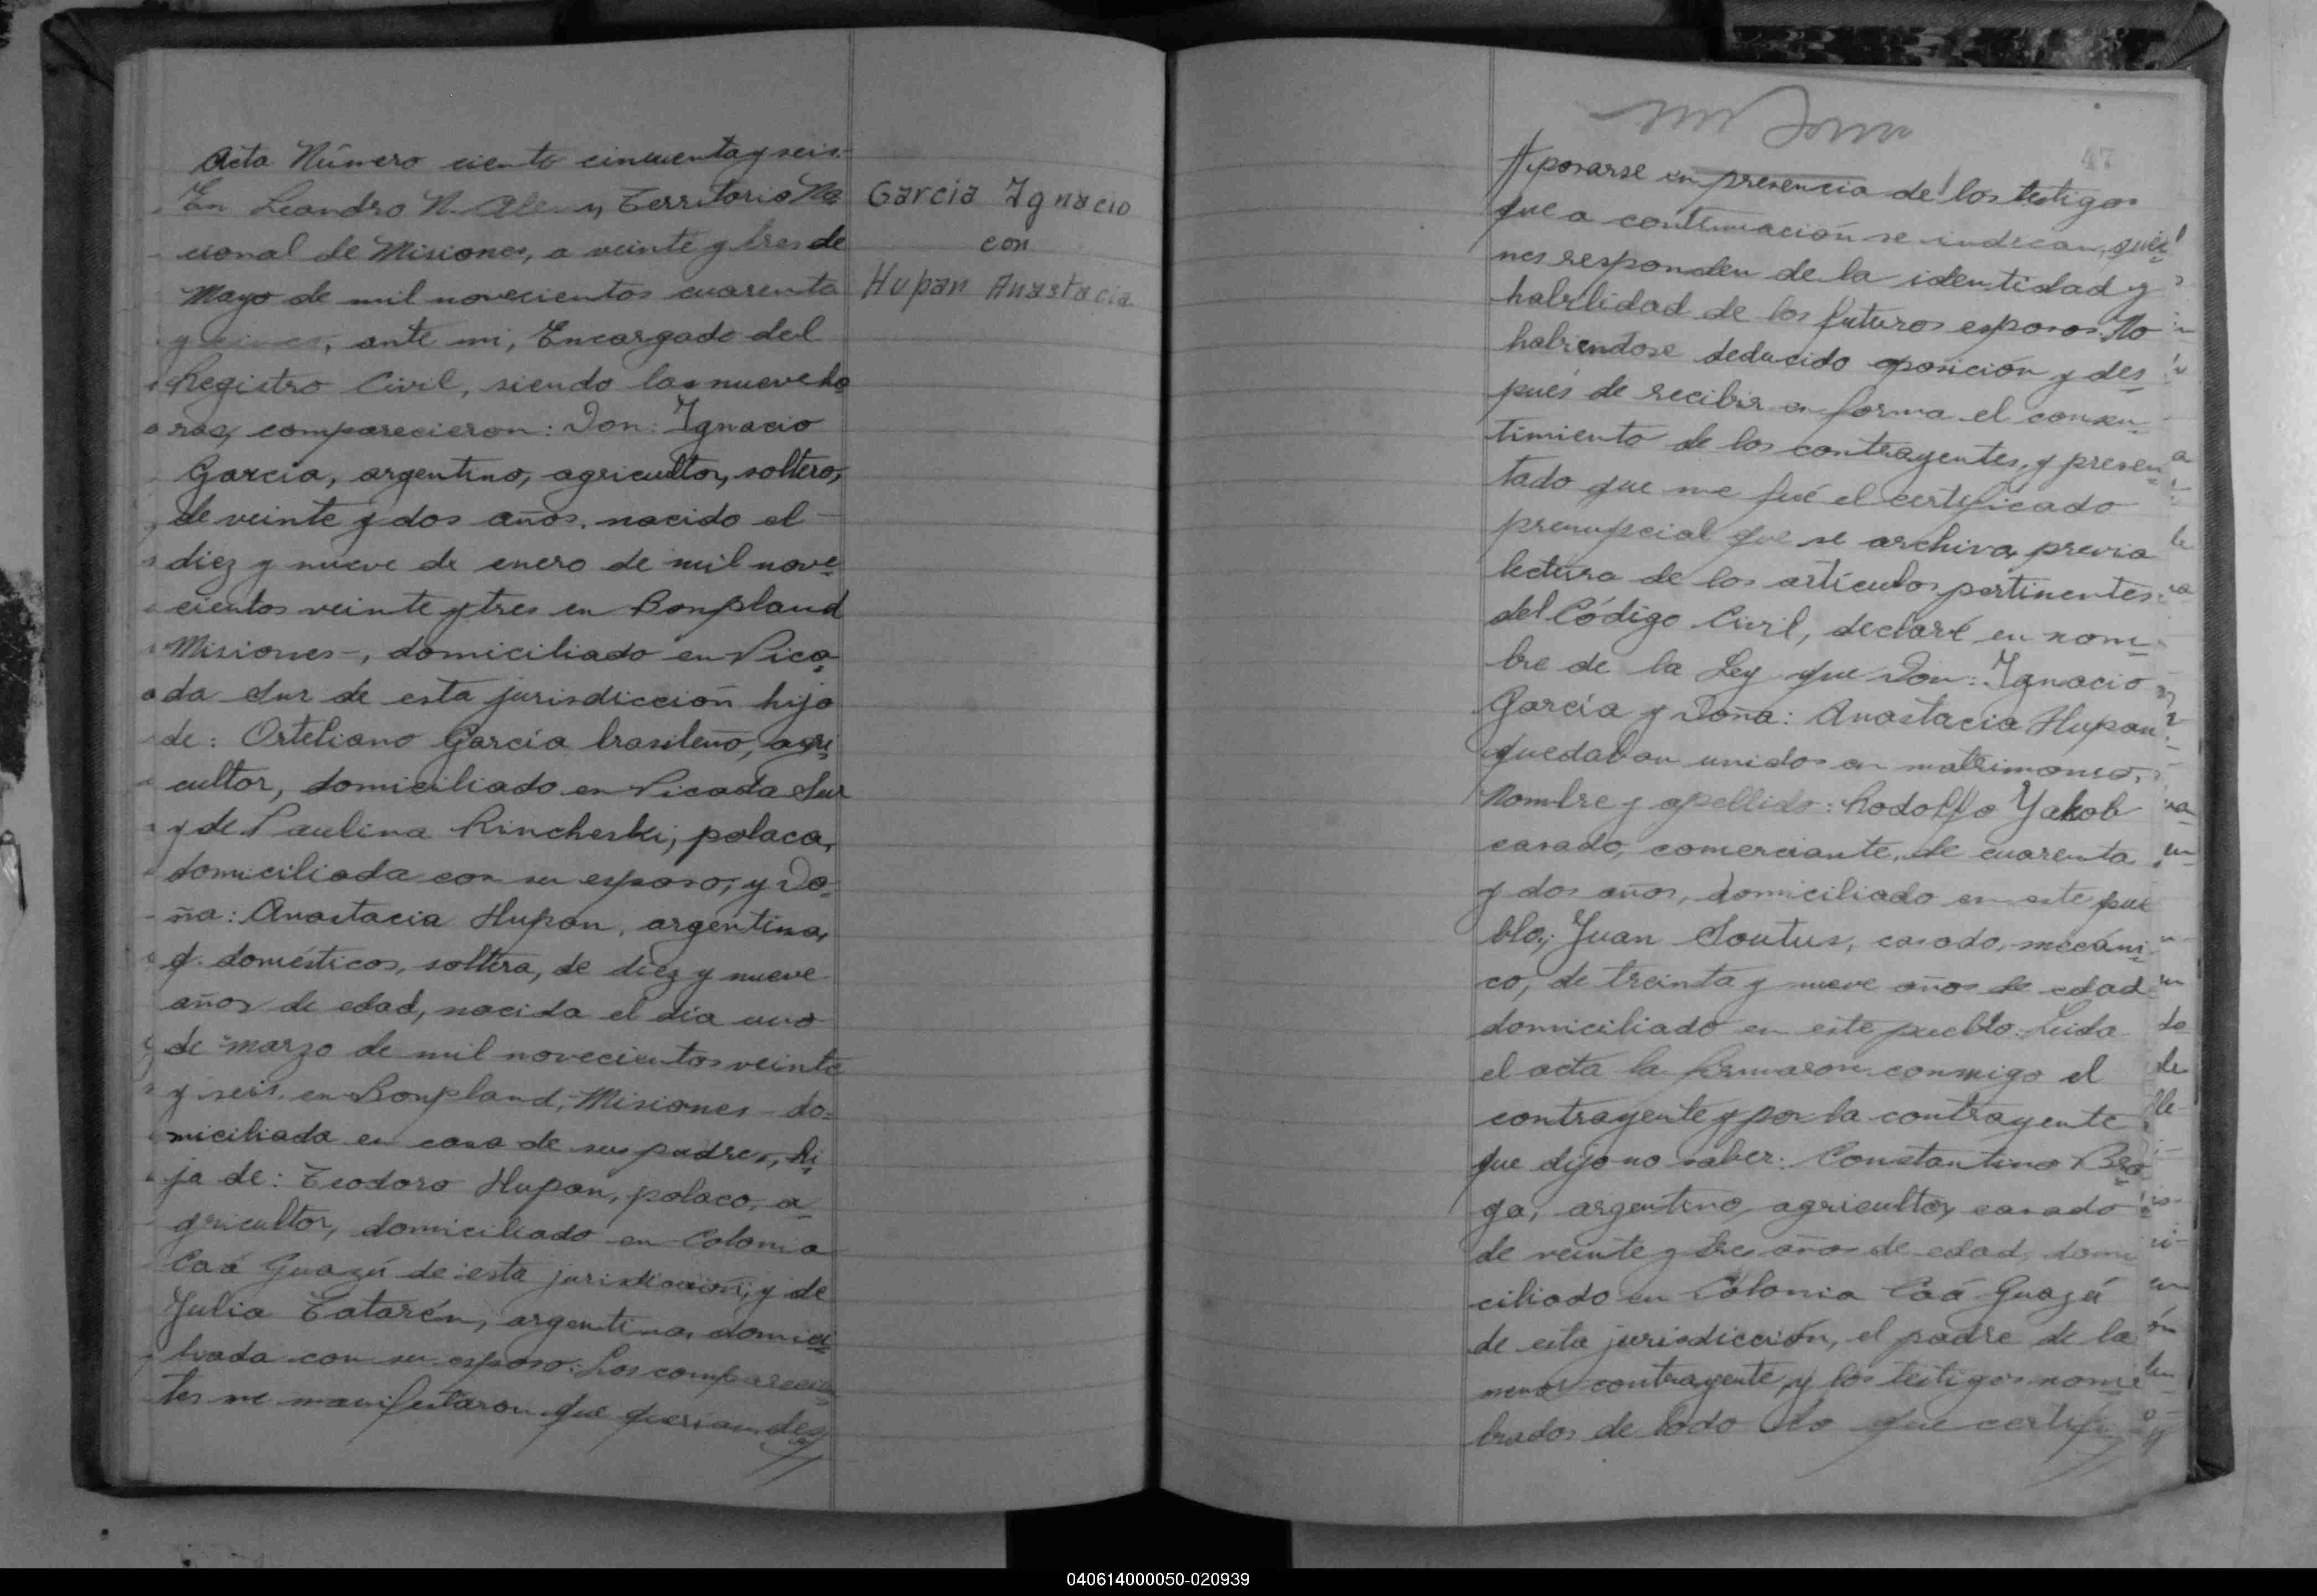 Acta Número ciento cincuenta y seis.-
En Leandro N. Alem, Territorio Na
cional de Misiones, a veinte y tres de
Mayo de mil novecientos cuarenta
y, ante mi, Encargado del
Registro Civil, siendo las nueve ho
ras, comparecieron: Don: Ignacio
Garcia, argentino, agricultor, soltero,
de veinte y dos años, nacido el
diez y nueve de enero de mil nove
cientos veinte y tres en Bonpland
Misiones-, domiciliado en Pica
da Sur de esta jurisdicción hijo
de: Orteliano García brasileño, agri
cultor, domiciliado en Picada Sur
y de Paulina Rincheski, polaca,
domiciliada con su esposo; y Do
ña: Anastacia Hupan, argentina,
q. domésticos, soltera, de diez y nueve
años de edad, nacida el día uno
de marzo de mil novecientos veinte
y seis, en Bonpland, Misiones - do-
miciliada en casa de sus padres, hi
ja de: Teodoro Hupan, polaco, a
gricultor, domiciliado en Colonia
Caá Guazú de esta jurisdicción, y de
Julia Tatarén, argentina, domici
liada con su esposo: Los comparecen
tes me manifestaron que querian des
Garcia Ignacio
con
Hupan Anastacia
47
posarse en presencia de los testigos
que a continuación se indican, quie
nes responden de la identidad y
habilidad de los futuros esposos. No
habiendose deducido oposición y des
pués de recibir en forma el consen
timiento de los contrayentes, y presen
tado que me fué el certificado
prenupcial que se archiva, previa
lectura de los artículos pertinentes
del Código Civil, declaré en nom
bre de la Ley que Don: Ignacio
García y Doña: Anastacia Hupan
quedaban unidos en matrimonio,
Nombre y apellido: Rodolfo Yakob
casado, comerciante, de cuarenta
y dos años, domiciliado en este pue
blo, Juan Soutus, casado, mecáni
co, de treinta y nueve años de edad
domiciliado en este pueblo. Leida
el acta la firmaron conmigo el
contrayente y por la contrayente
que dijo no saber: Constantino Bra
ga, argentino, agricultor, casado
de veinte y tres años de edad, domi
ciliado en Colonia Caá Guazú
de esta jurisdicción, el padre de la
menor contrayente, y los testigos nom
brados de todo lo que certifi
040614000050-020939